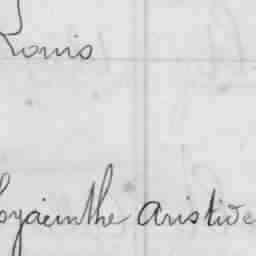 Louis
hyacinthe Aristide